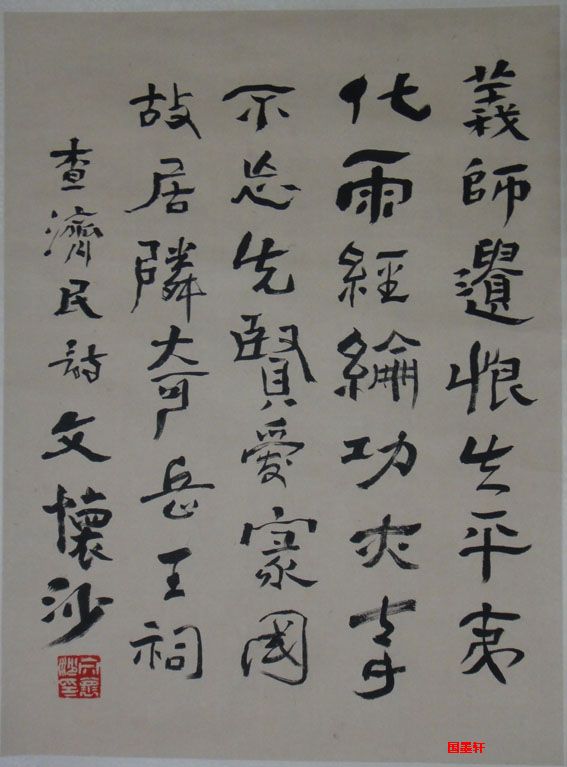 義師遺恨失平夷
化雨經綸功亦奇
不忘先賢愛家國
故居隣奇岳王祠
查濟民詩文懷沙
国墨轩